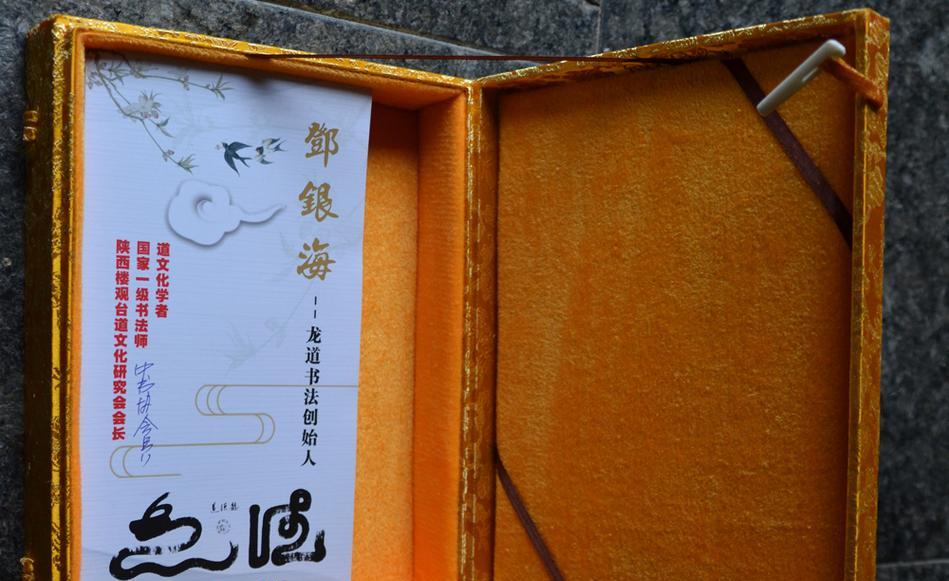 鄧銀海
——龙道书法创始人
道文化学者
国家一级书法师
中书协会员
陕西楼观台道文化研究会会长